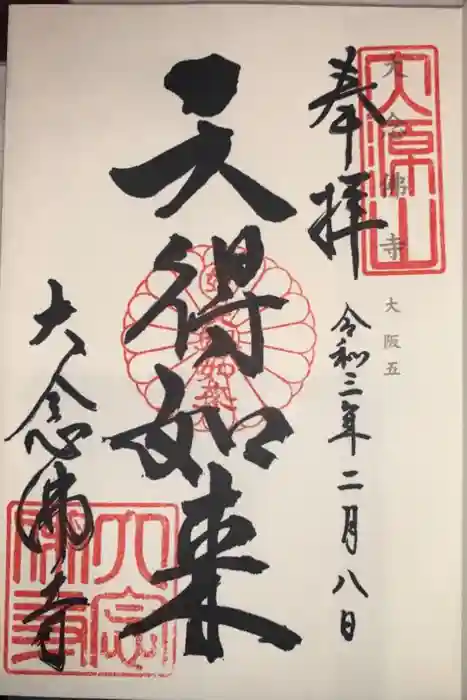 奉拝
大源山
大念佛寺
大阪五
令和三年二月八日
天得如来
大念佛寺
大念佛寺